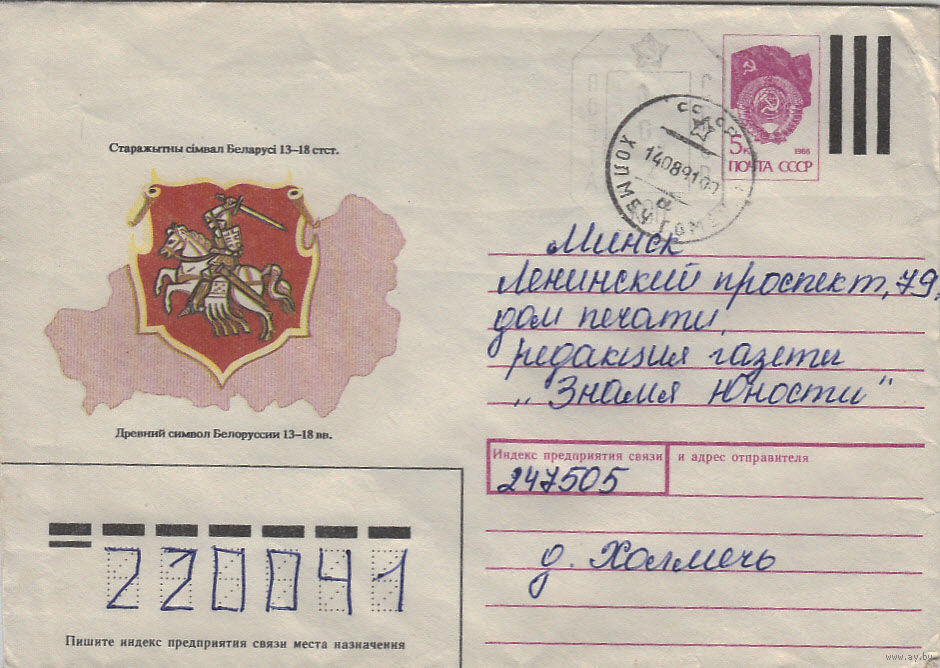 5к
1988
ПОЧТА СССР
Старажытны сімвал Беларусі 13–18 стст.
14089109
Минск
Ленинский проспект, 79,
дом печати,
редакция газети
„Знамя Юности"
Древний символ Белоруссии 13–18 вв.
Индекс предприятия связи и адрес отправителя
247505
д. Холмечь
220041
Пишите индекс предприятия связи места назначения
www.ay.by